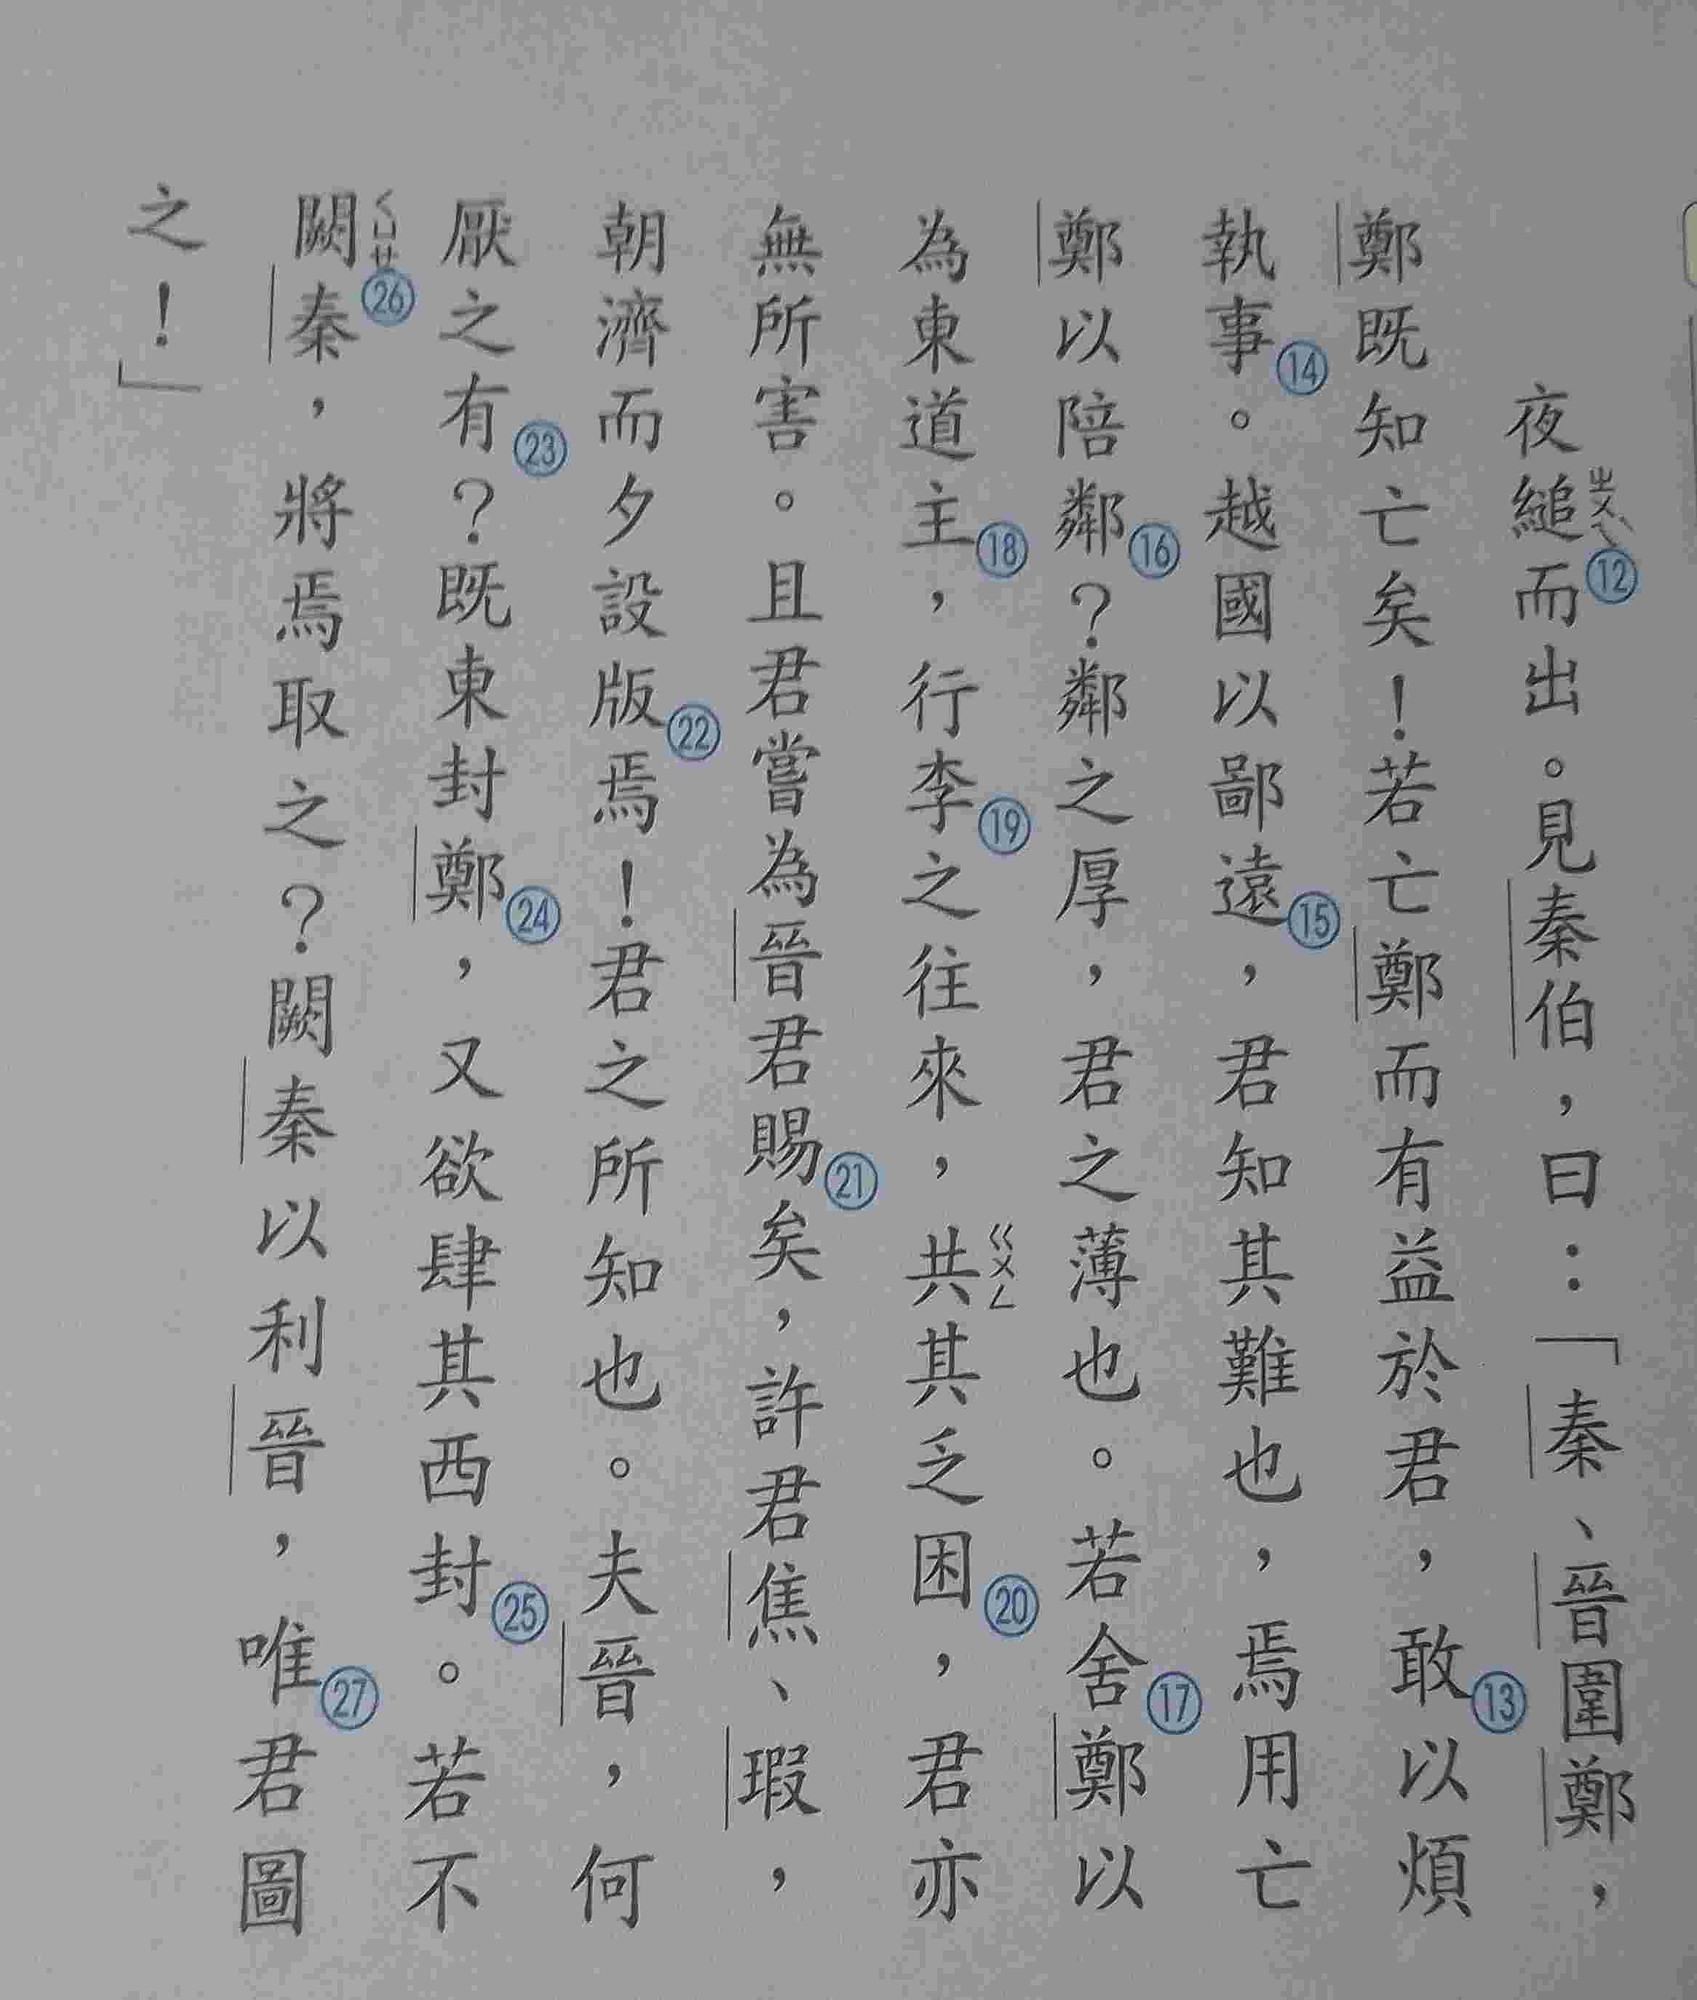 夜縋ㄓㄨㄟˋ⑫而出。見秦伯，曰：「秦、晉圍鄭，
鄭既知亡矣！若亡鄭而有益於君，敢⑬以煩
執事⑭。越國以鄙遠⑮，君知其難也，焉用亡
鄭以陪鄰⑯？鄰之厚，君之薄也。若舍⑰鄭以
為東道主⑱，行李⑲之往來，共ㄍㄨㄥ其乏困⑳，君亦
無所害。且君嘗為晉君賜㉑矣，許君焦、瑕，
朝濟而夕設版㉒焉！君之所知也。夫晉，何
厭之有㉓？既東封鄭㉔，又欲肆其西封㉕。若不
闕ㄑㄩㄝ㉖秦，將焉取之？闕秦以利晉，唯㉗君圖
之！」